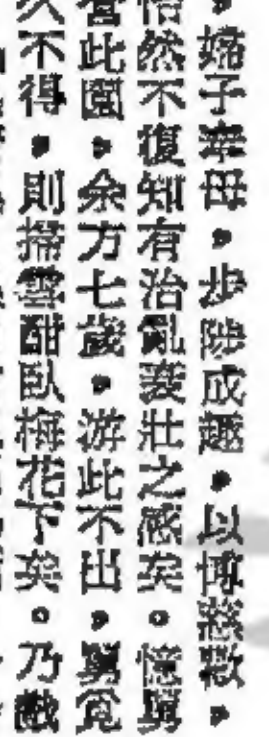 ，婦子牽母，步陟成趣，以博慈歡，
然不復知有治亂衰壯之感矣。憶舅
營此園，余方七歲，游此不出，舅覓
久不得，則掃雲酣臥梅花下矣。乃戲